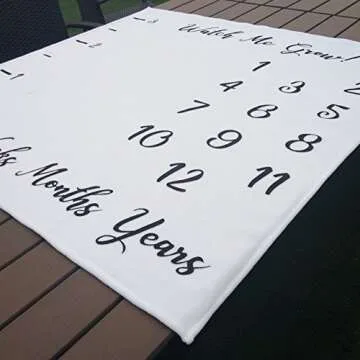 Watch Me Grow!
1 2
3
4 5
6
7 8
9
10 11
12
-3
-2
-1
Months Years